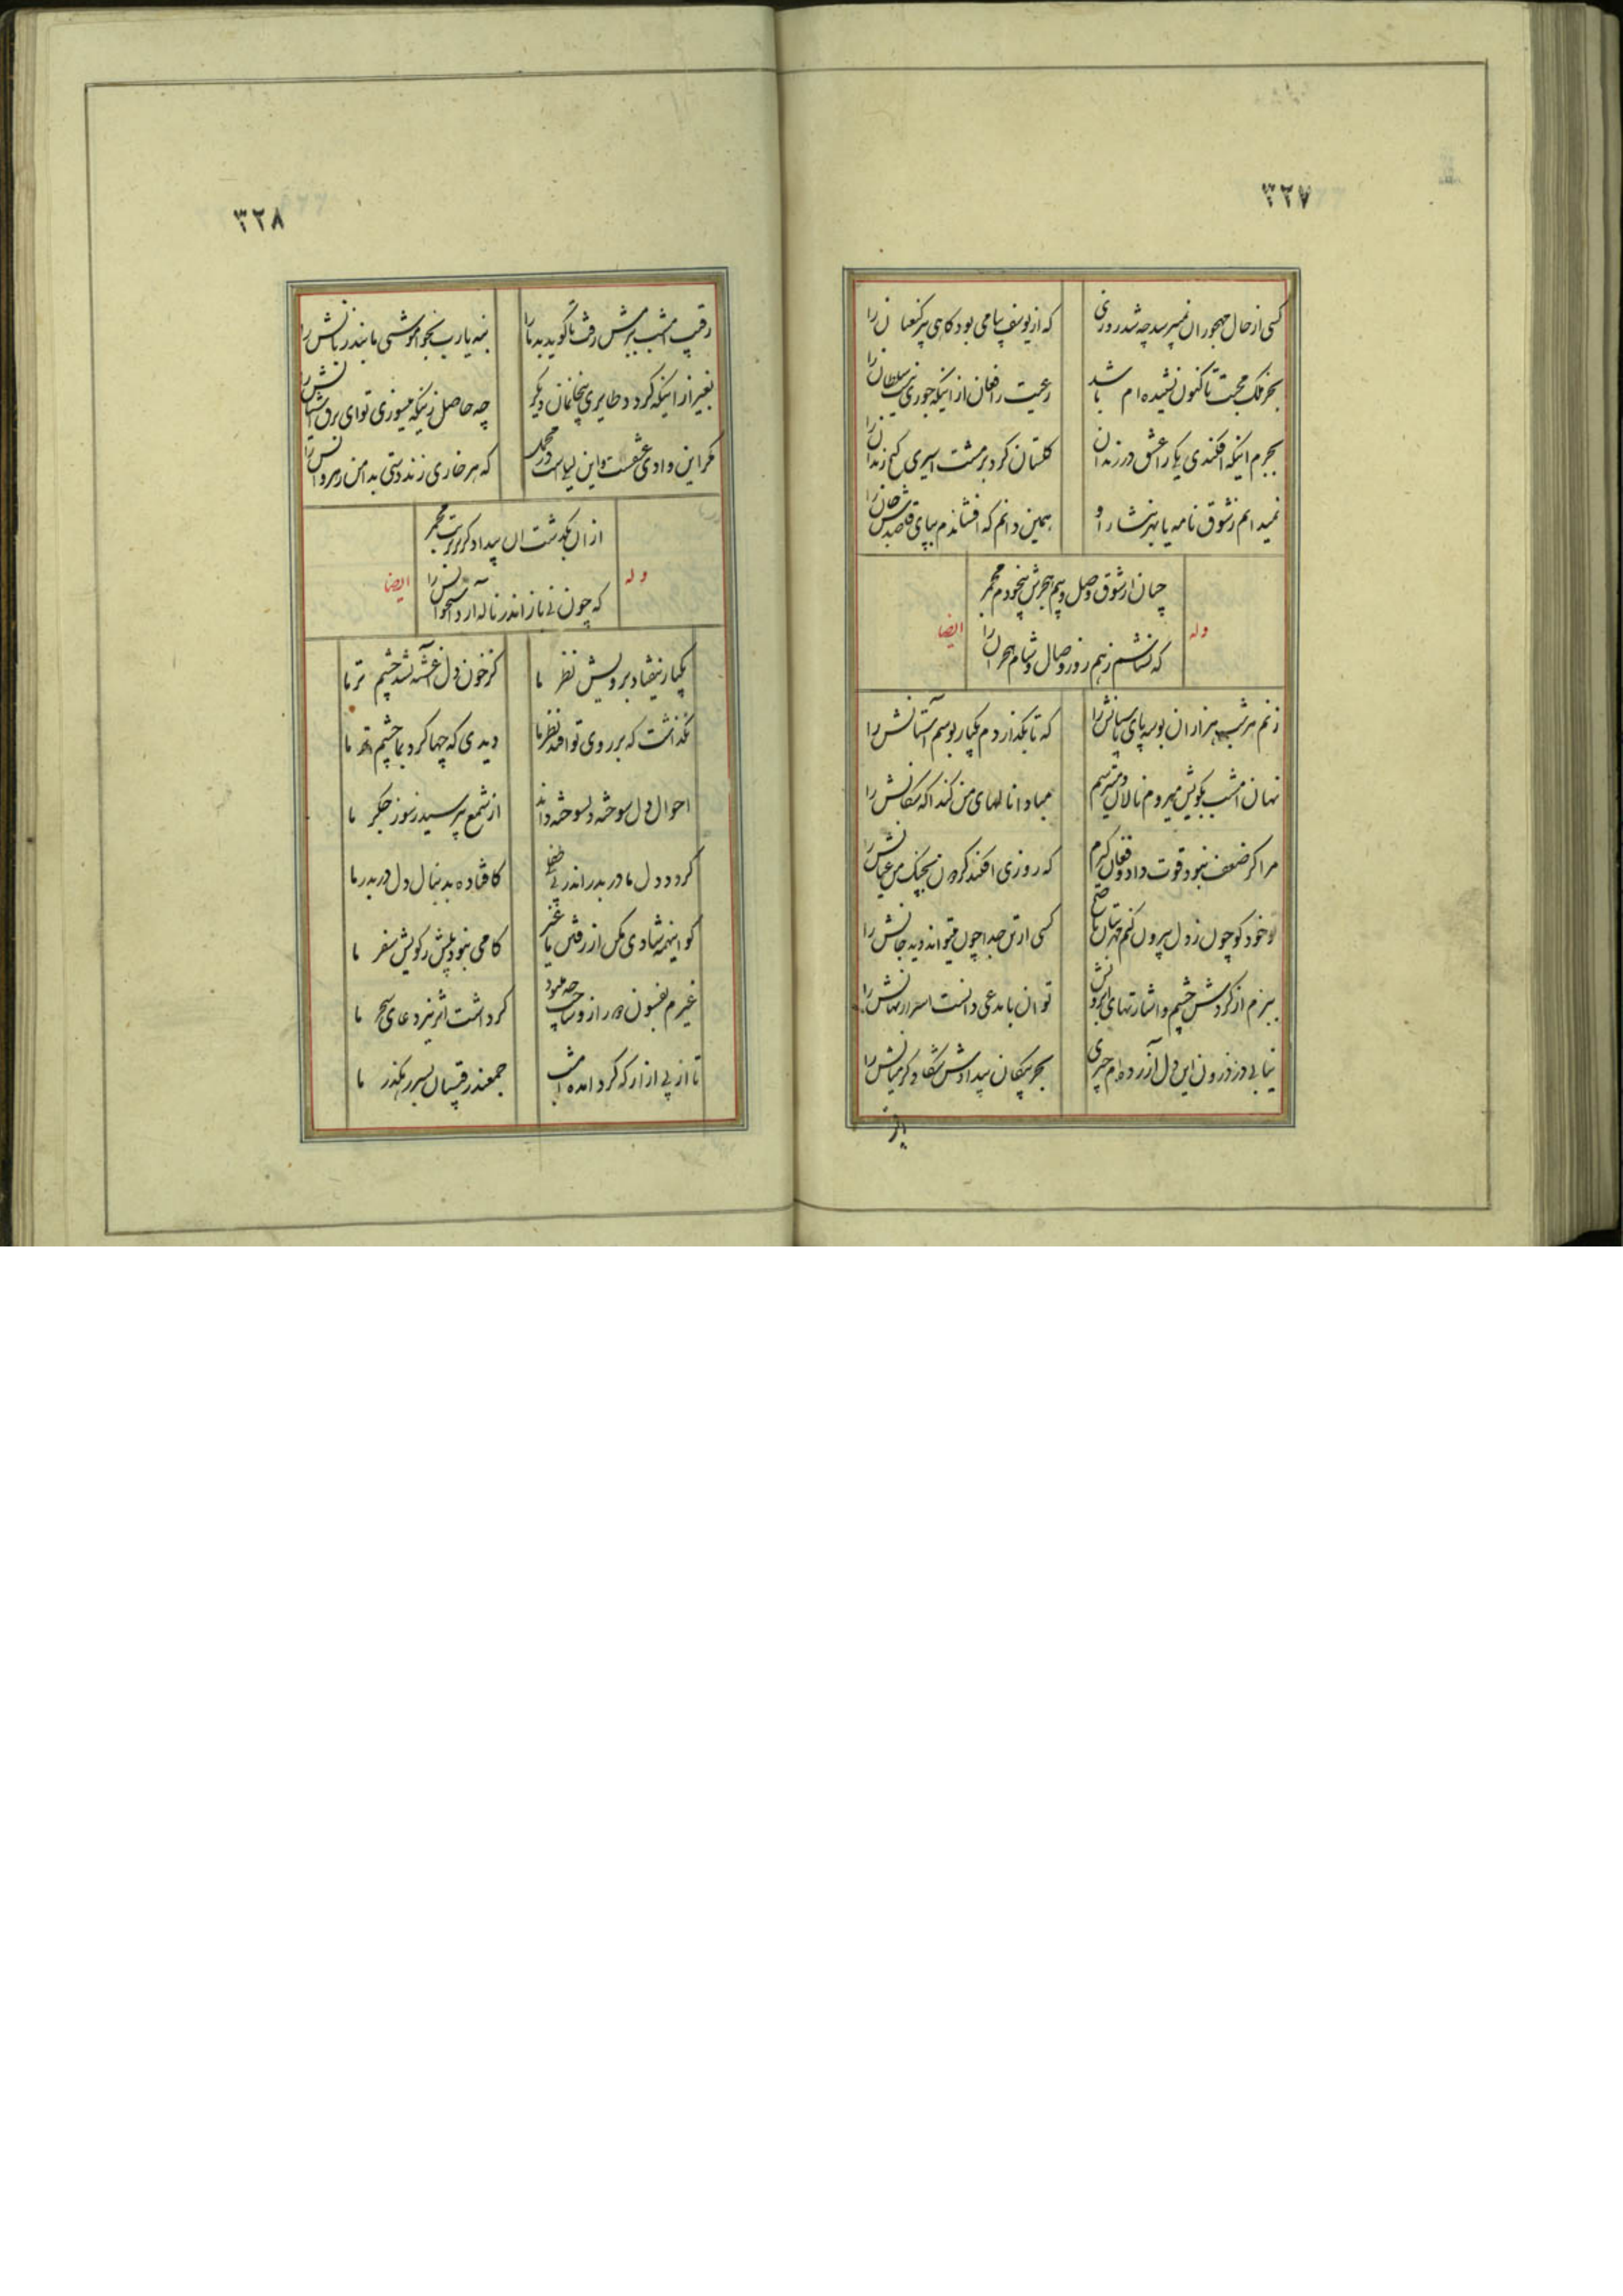 ٣٢٧
کسی از حال مهجوران نمیپرسد چه شد روزی
که از یوسف پیامی بود کاهی پیر کنعان را
بجز ملک محبت تا کنون نشنیده ام باشد
رعیت را فغان از اینکه جوری نیست سلطان را
بجرم اینکه افکندی یکی را عشق در زندان
کلستان کرد بر مشت اسیری کنج زندان را
نمیدانم ز شوق نامه یا بهر نثار او
همین دانم که افشاندم بپای قاصدش جان را
چنان از شوق وصل و بیم هجرش بیخودم مجمر
وله
ایضا
که نشناسم ز هم روز وصال و شام هجران را
زنم هر شب هزاران بوسه پای پاسبانش را
که تا بگذاردم یکبار بوسم آستانش را
نهان امشب بکویش میروم نالان و میترسم
مبادا نالهای من کند اکه سکانش را
مرا کر ضعف نبود قوت داد و فغان کیرم
که روزی افکند کردون بچنک من عنانش را
تو خود کو چون ز دل بیرون کنم مهر بتان ناصح
کسی از تن جدا چون میتواند دید جانش را
ببزم از کردش چشم و اشارتهای ابرویش
توان با مدعی دانست اسرار نهانش را
نیابی در درون این دل آزرده ام چیزی
بجز پیکان بیدادش شکافی کر میانش را
٣٢٨
رقیب امشب ببزمش رفت تا کوید بد ما را
بنه یارب بخواموشی ما بند زبانش را
بغیر از اینکه کردد طایری بیخانمان دیکر
چه حاصل زینکه میسوزی تو ای برق آشیانش را
مکر این وادی عشقست و این لیلی است در محمل
که هر خاری زند دستی بدامن رهروانش را
از ان بگذشت ان بیدادکر بر تربت مجمر
وله
ایضا
که چون نی باز اندر ناله آرد استخوانش را
یکبار نیفتاد برویش نظر ما
کز خون دل آغشته نشد چشم تر ما
نگذاشت که بر روی تو افتد نظر ما
دیدی که چها کرد بما چشم تر ما
احوال دل سوخته دلسوخته داند
از شمع بپرسید ز سوز جکر ما
کردد دل ما در بدر اندر پی طفلی
کافتاده بدنبال دل در بدر ما
کو اینهمه شادی مکن از رفتن ما غیر
کامی نبود بیش ز کویش سفر ما
غیرم بفسون از در او ساخت چه میبود
کر داشت اثر نیز دعای سحر ما
تا از پی ازار که کرد امده امشب
جمعند رقیبان بسر رهکذر ما